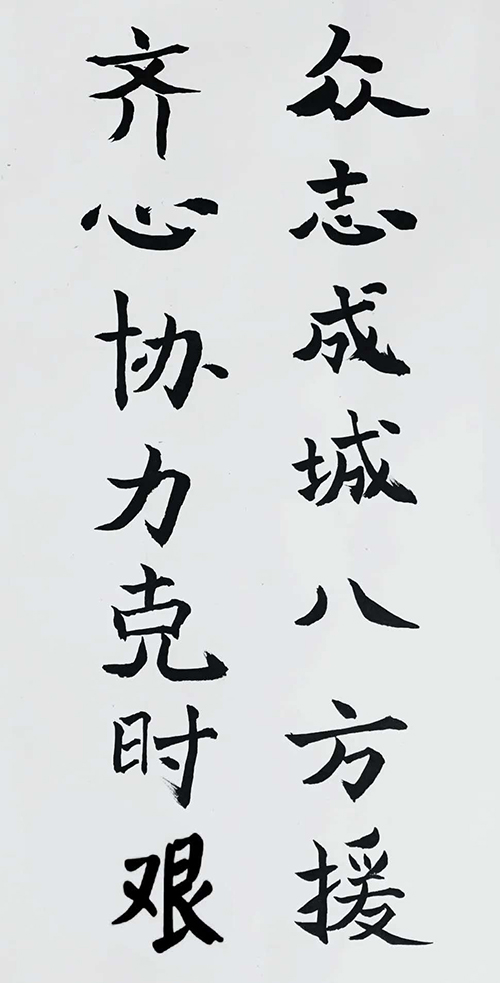 众志成城八方援
齐心协力克时艰